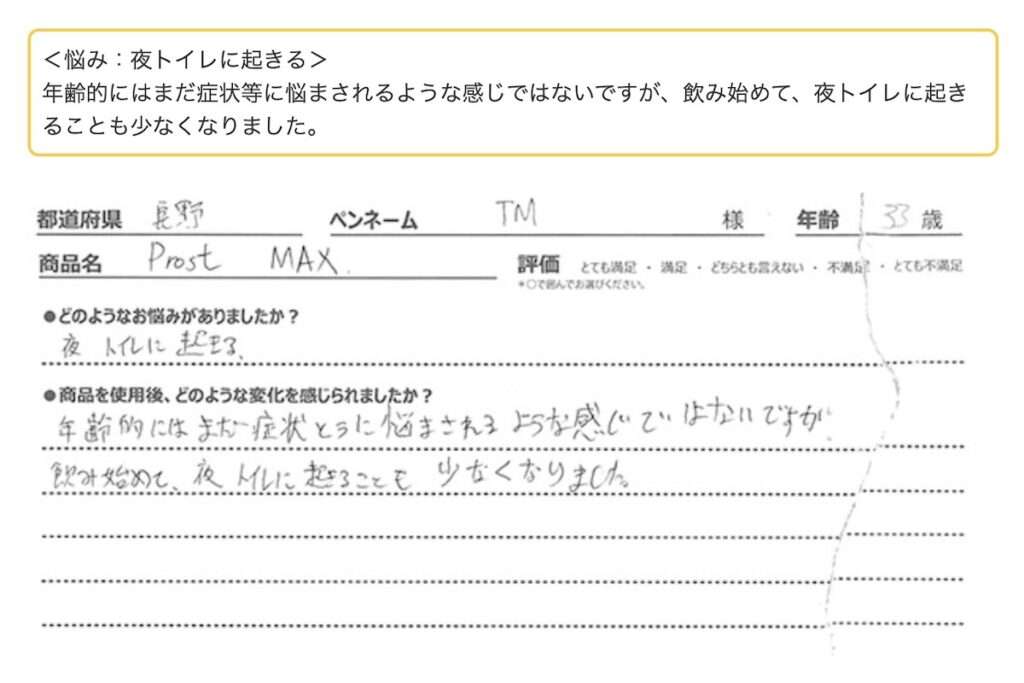 ＜悩み：夜トイレに起きる＞
年齢的にはまだ症状等に悩まされるような感じではないですが、飲み始めて、夜トイレに起き
ることも少なくなりました。
都道府県 長野 ペンネーム TM 様 年齢 33 歳
商品名 Prost MAX. 評価 とても満足 ・ 満足 ・ どちらとも言えない ・ 不満足 ・ とても不満足
＊○で囲んでお選びください。
●どのようなお悩みがありましたか？
夜 トイレに 起きる。
●商品を使用後、どのような変化を感じられましたか？
年齢的にはまだ症状とうに悩まされるような感じではないですが、
飲み始めて、夜トイレに起きることも 少なくなりました。